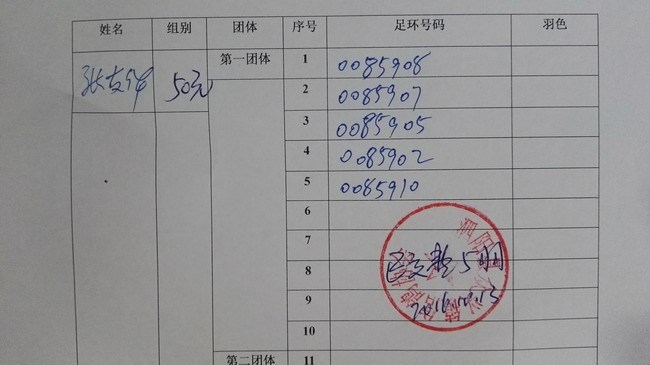 姓名 组别 团体 序号 足环号码 羽色
张友 50元 第一团体 1 0085908
2 0085907
3 0085905
4 0085902
5 0085910
6
7
8
9
10
第二团体 11
已交 5羽
2016.10.13